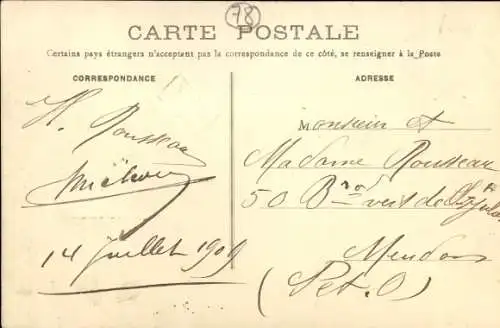 78
CARTE POSTALE
Certains pays étrangers n'acceptent pas la correspondance de ce côté, se renseigner à la Poste
CORRESPONDANCE
ADRESSE
H. Rousseau
14 Juillet 1909
Monsieur et
Madame Rousseau
50 Bard de
Meudon
(Set. O)